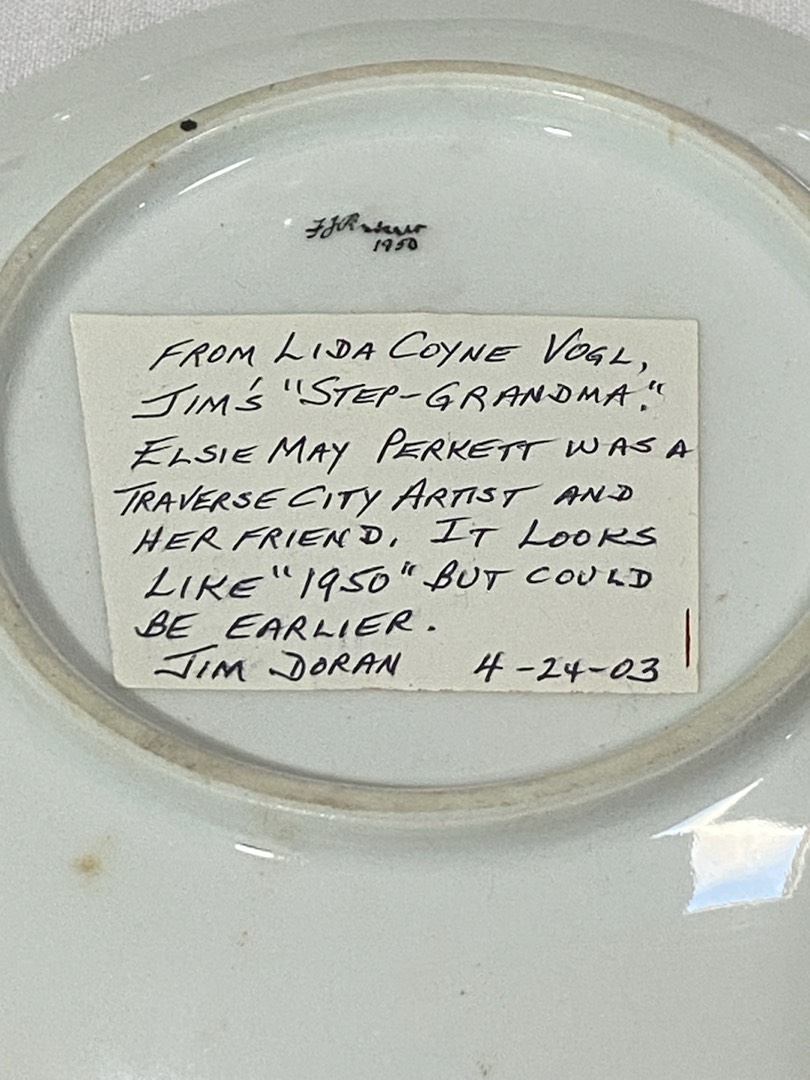 1950
FROM LIDA COYNE VOGL,
JIM'S "STEP-GRANDMA."
ELSIE MAY PERKETT WAS A
TRAVERSE CITY ARTIST AND
HER FRIEND. IT LOOKS
LIKE "1950" BUT COULD
BE EARLIER.
JIM DORAN 4-24-03